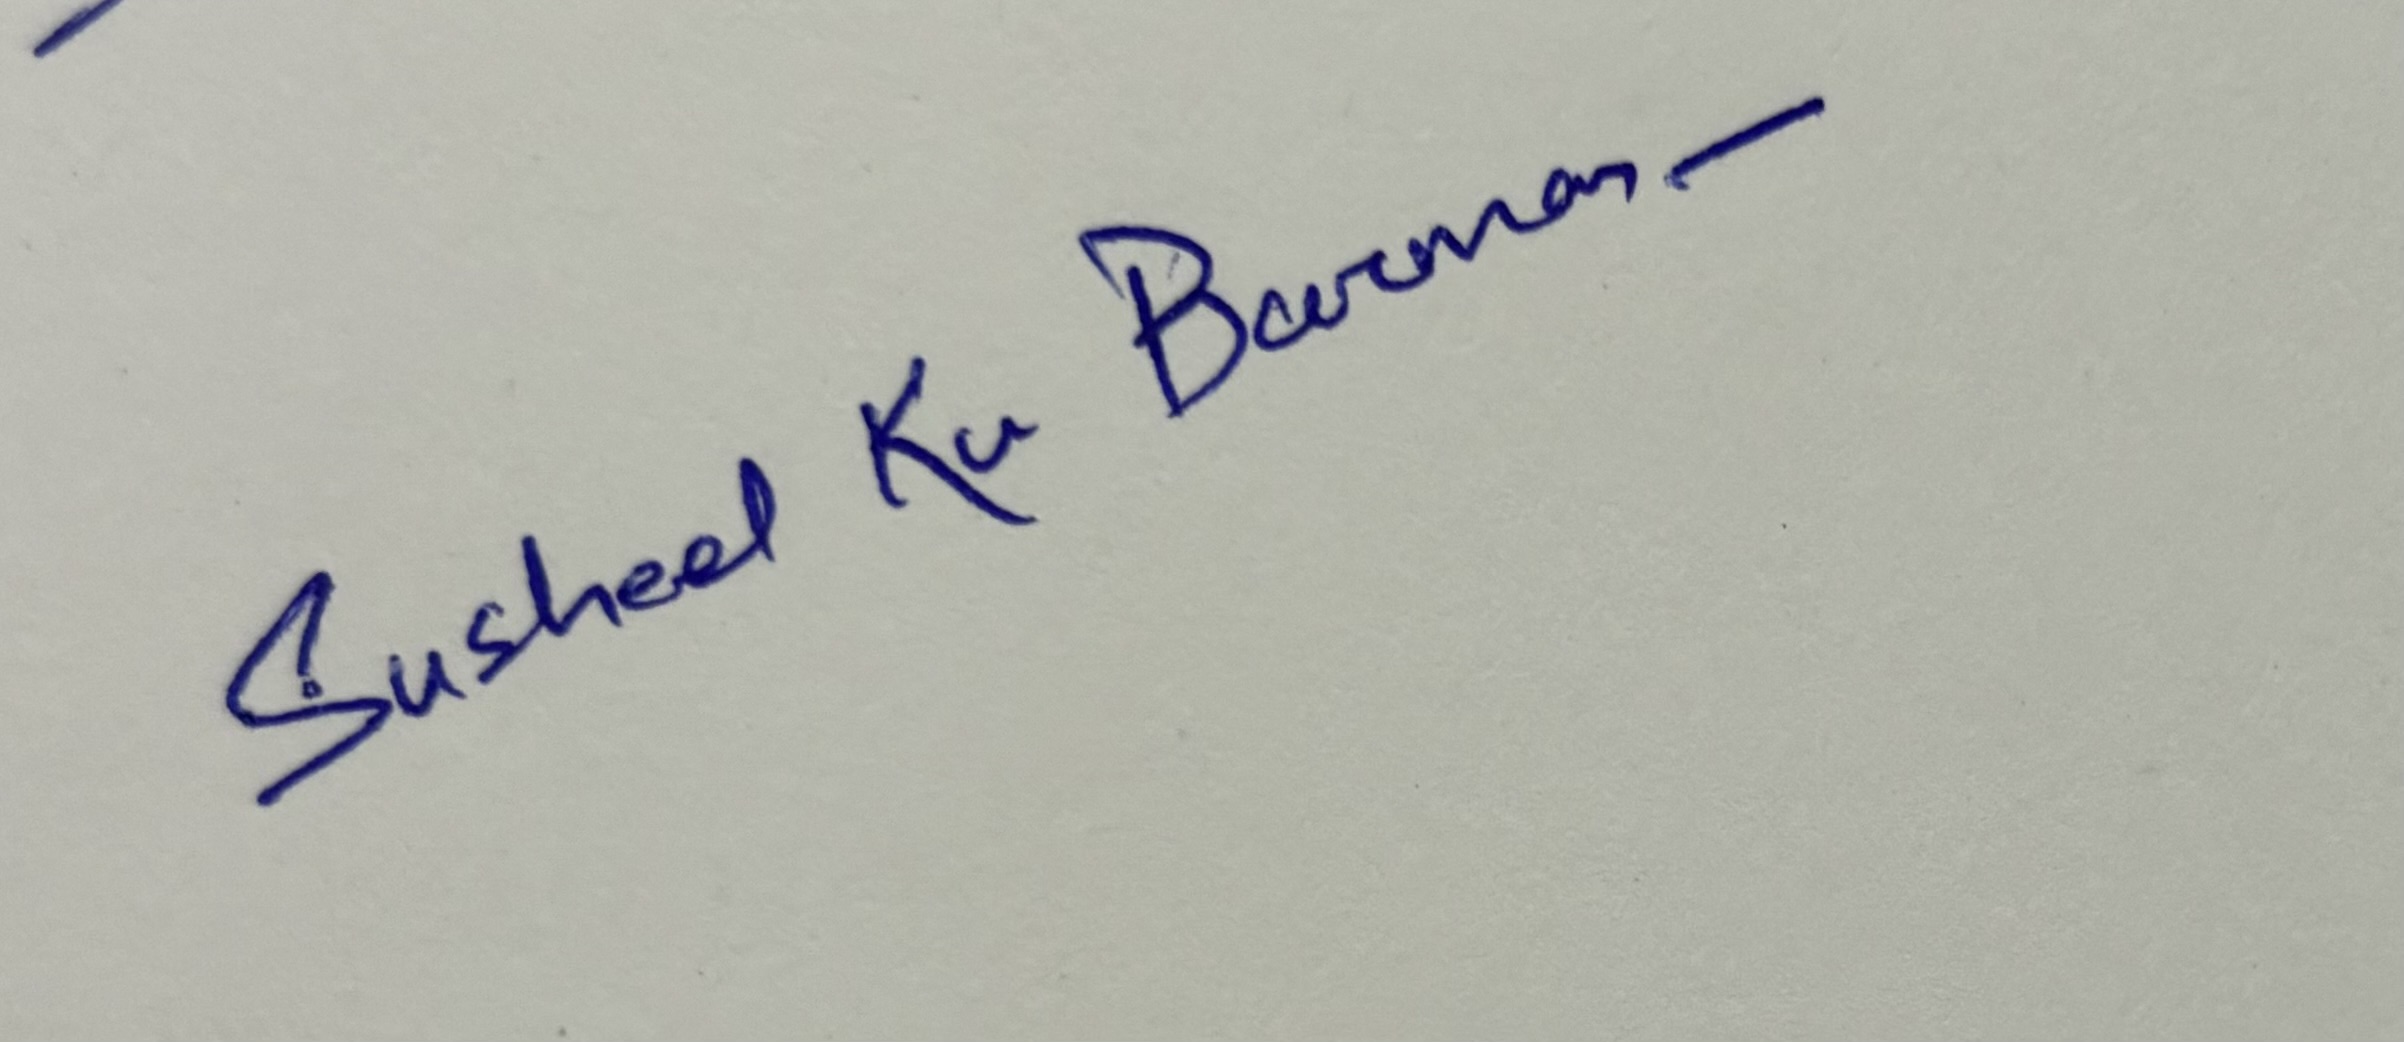 Susheel Ku Barman